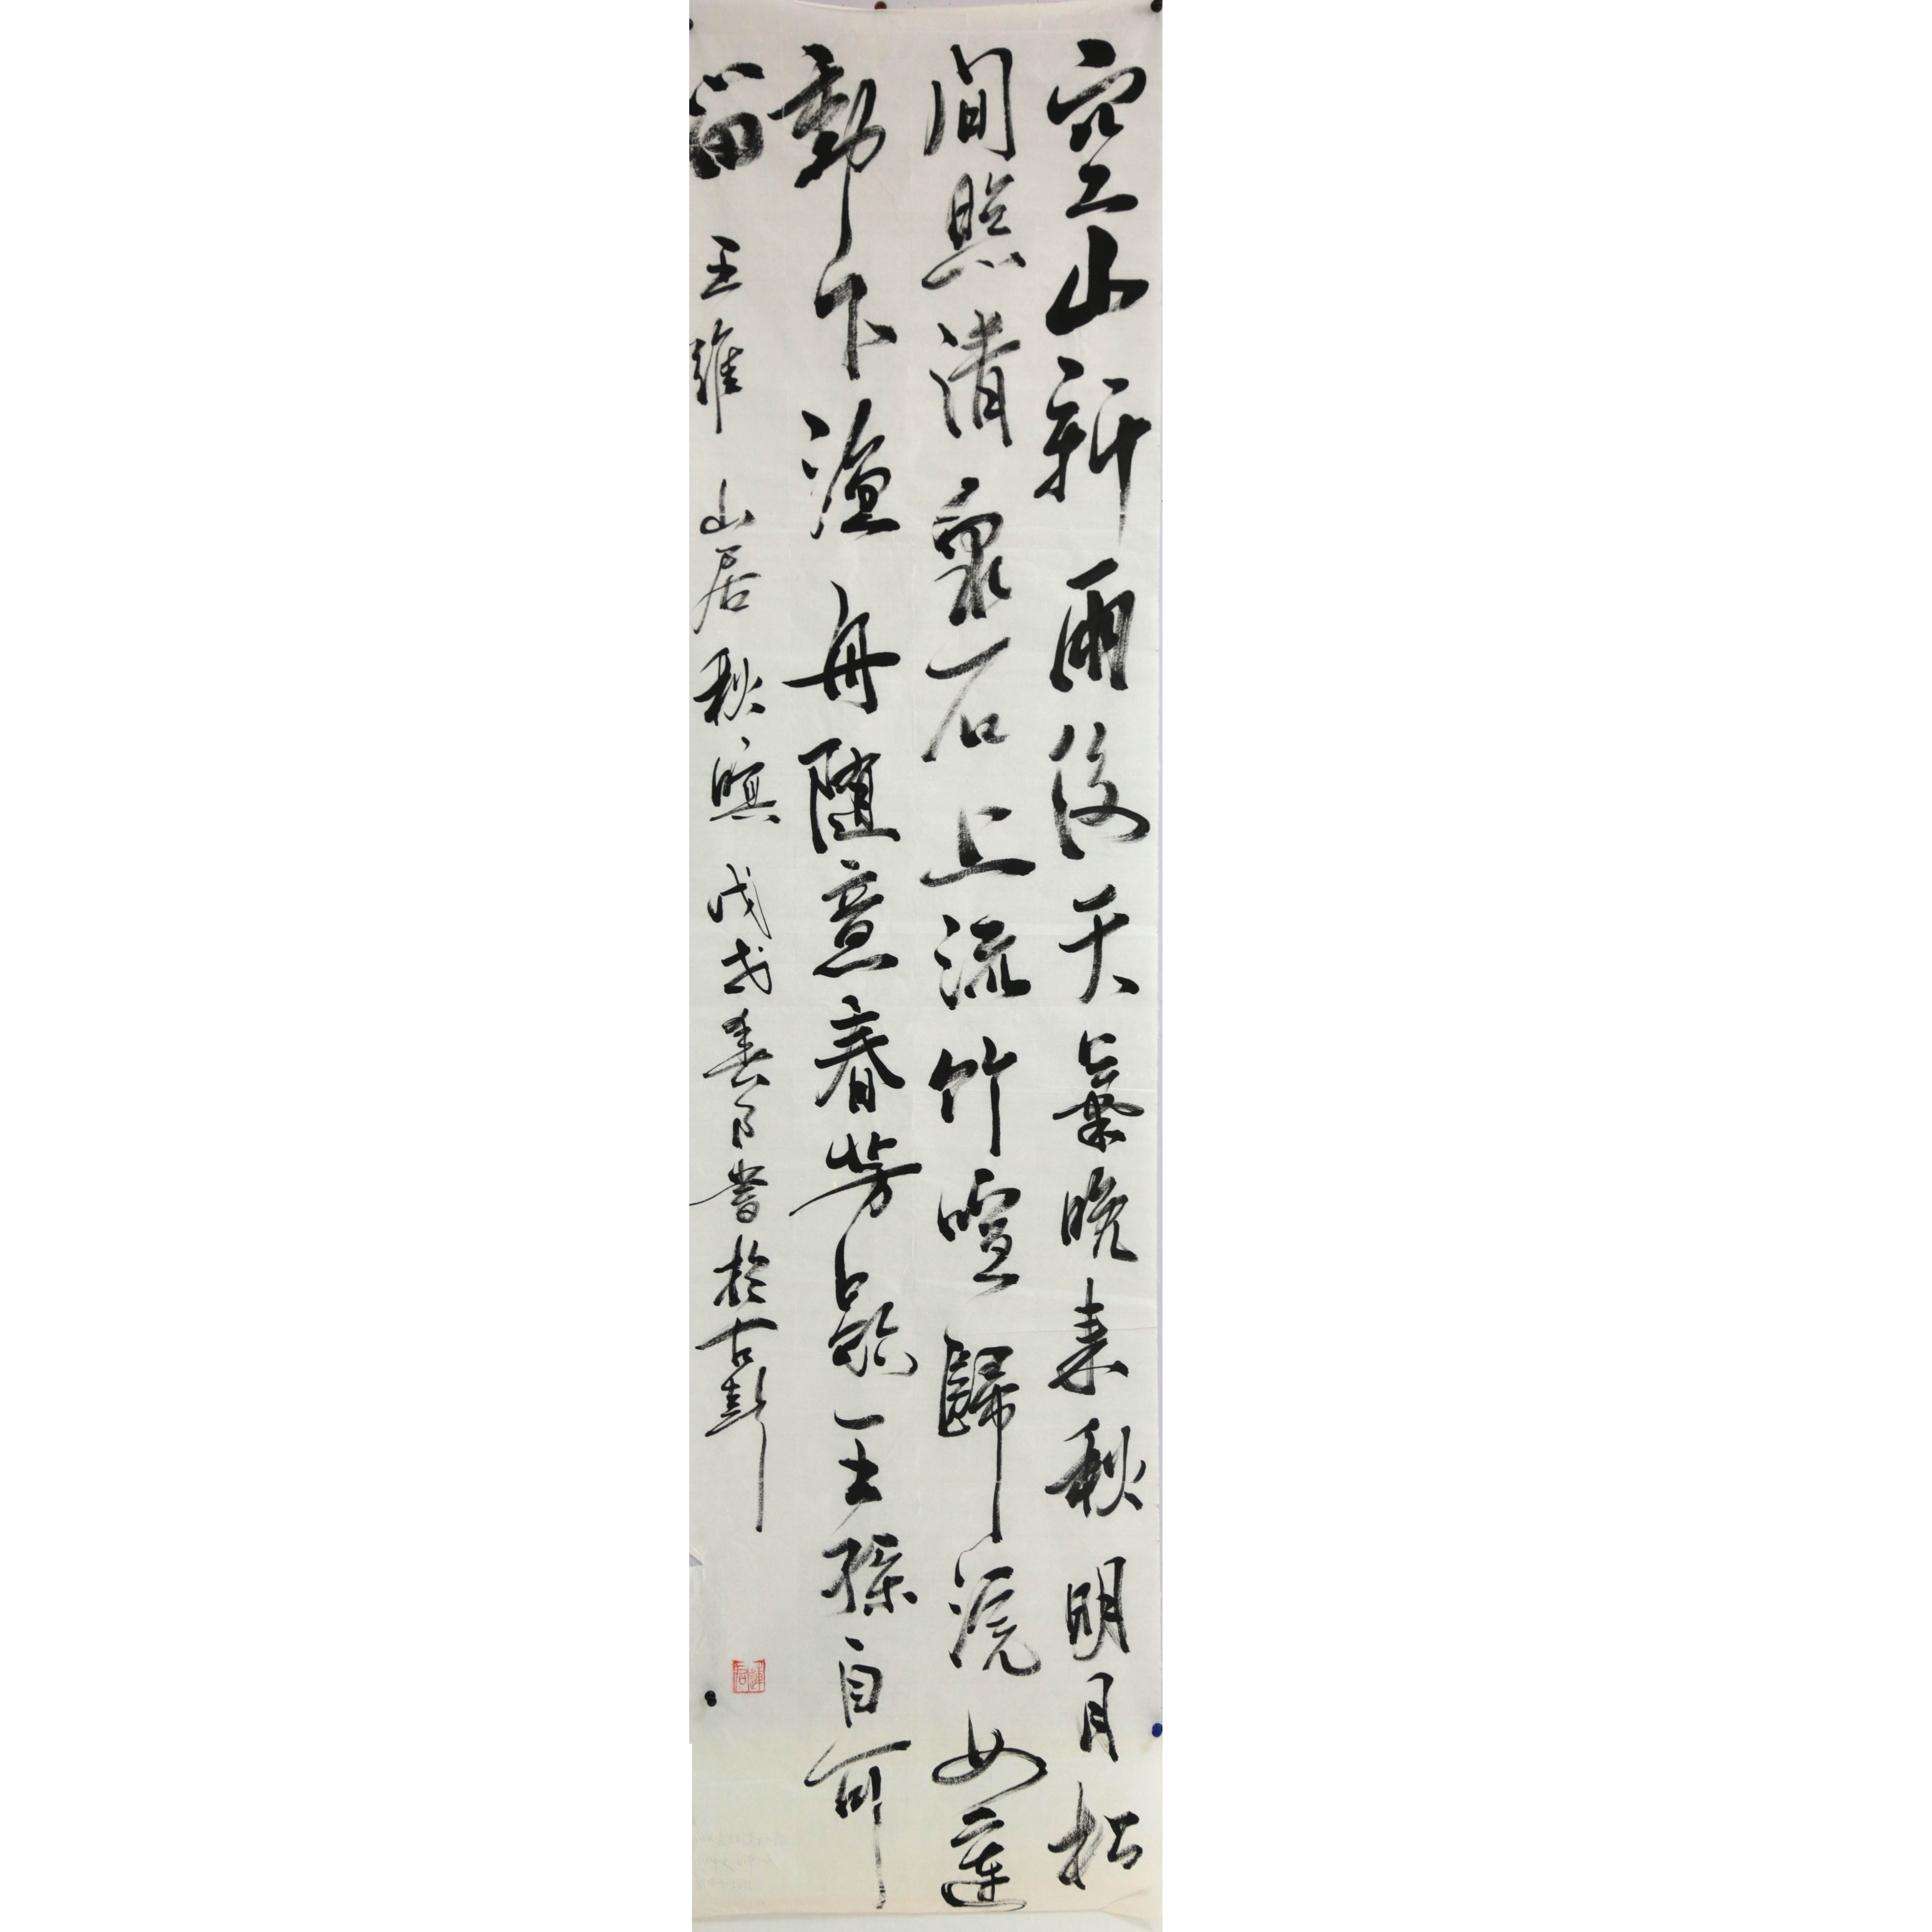 空山新雨後天氣晚来秋明月松
間照清泉石上流竹喧歸浣女蓮
動下漁舟随意春芳歇王孫自可
留 王維 山居秋暝 戊戌春月書於古彭